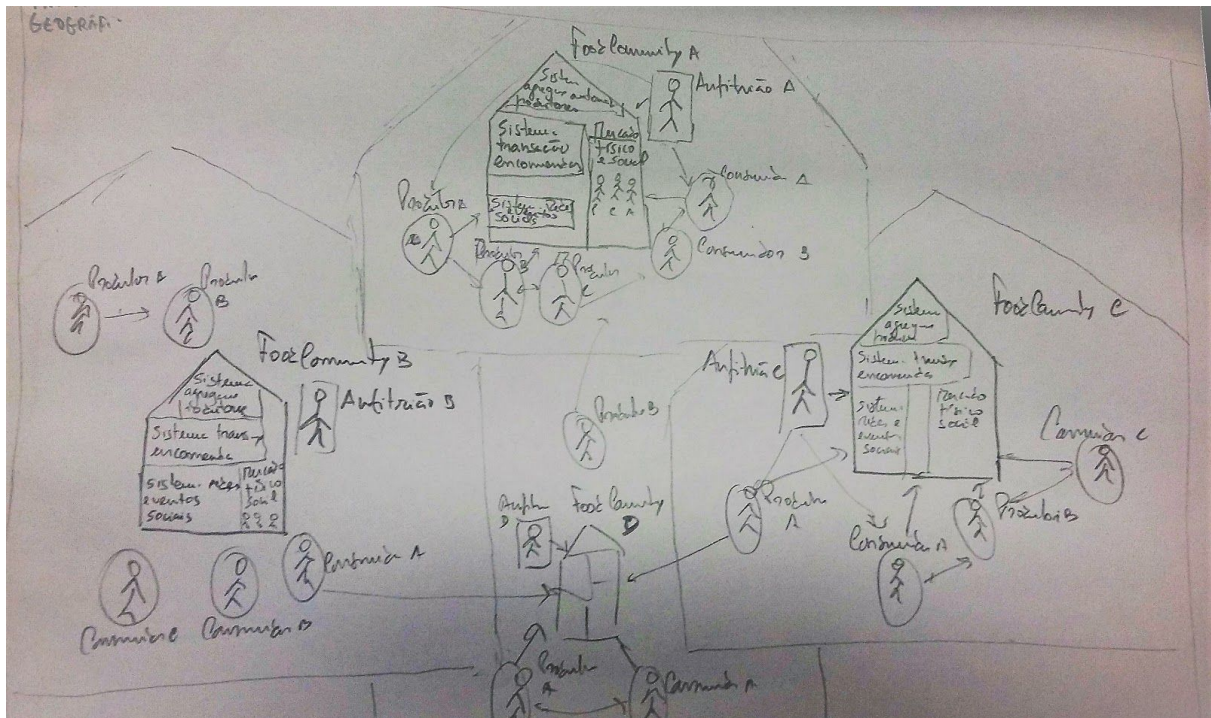 GEOGRÁFI
Food Comunity A
Sistema
agregar automat
produtores
Anfitrião A
Sistema
transação
encomendas
Mercado
físico
e social
Produtor A
Consumidor A
Consumidor B
Produtor
B
Produtor
C
Produtor A
Produtor
B
Food Comunity B
Sistema
agregar
produtores
Anfitrião B
Sistema trans
encomenda
Mercado
físico
social
eventos
sociais
Consumidor A
Consumidor B
Consumidor C
Produtor B
Food Comunity
D
Produtor
A
Consumidor A
Food Comunity C
Sistema
agregar
Anfitrião C
Sistema trans
encomendas
Sistema
redes e
eventos
sociais
Mercado
físico
social
Consumidor C
Produtor
A
Produtor B
Consumidor A